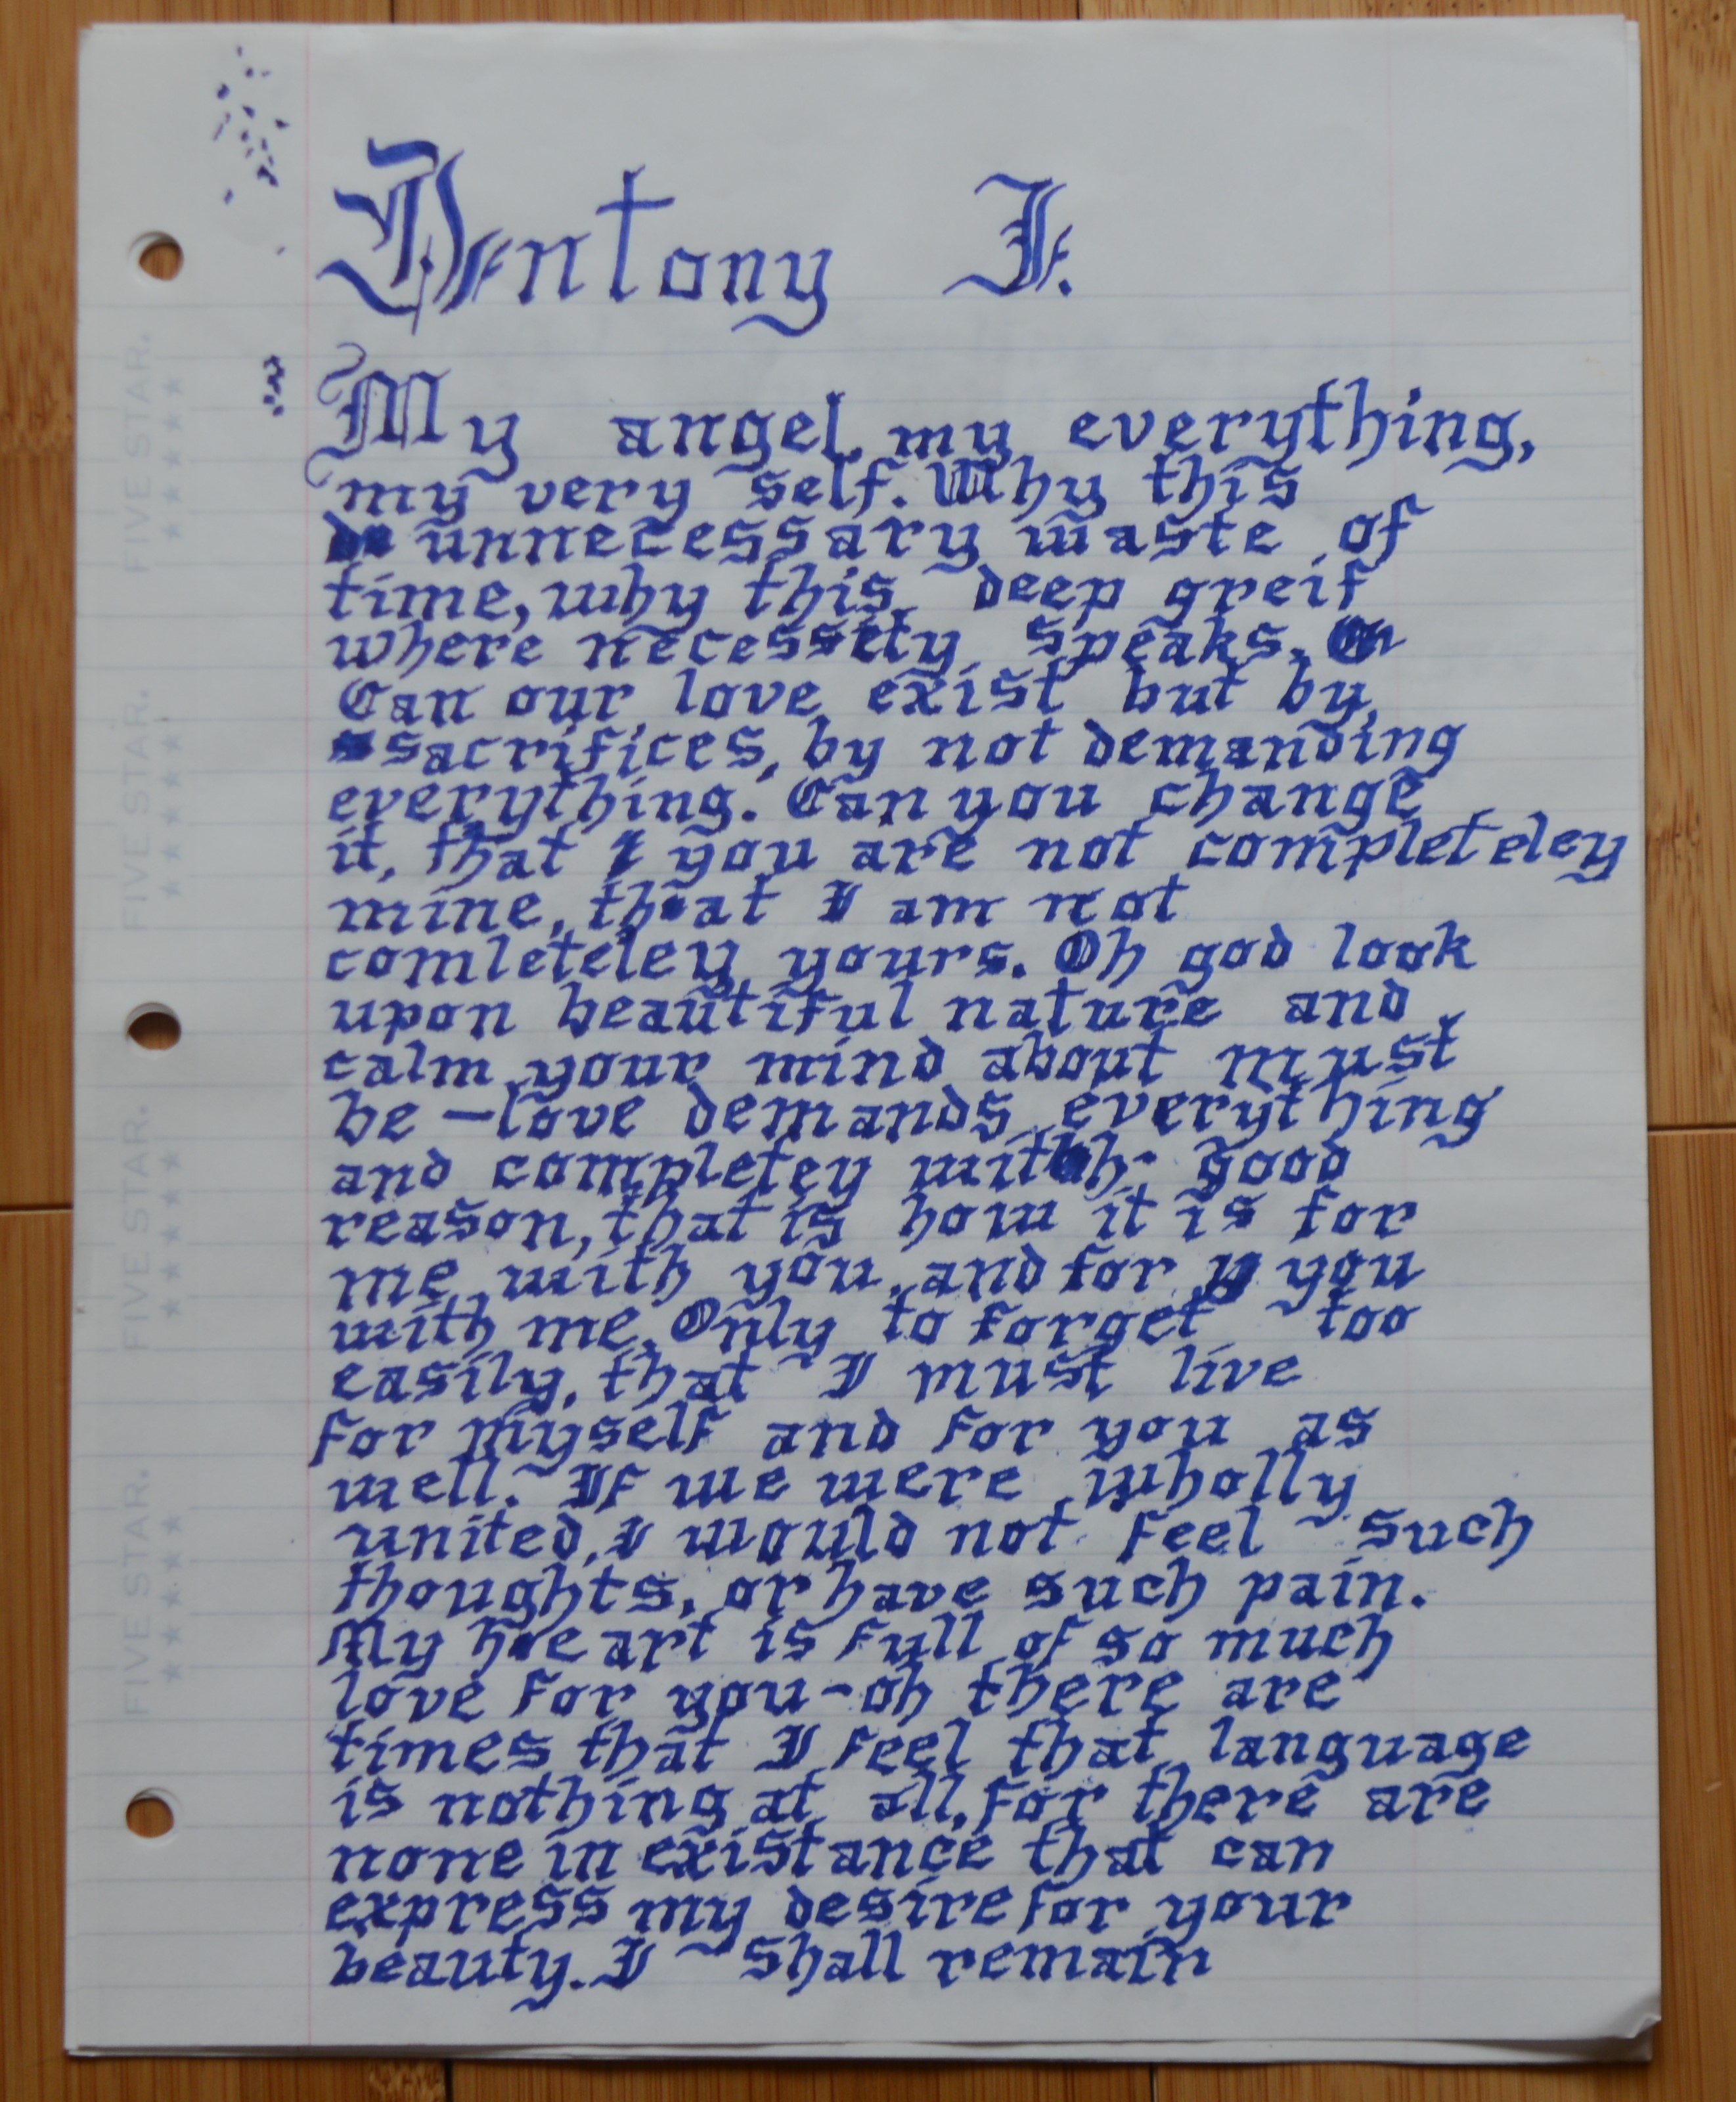 Antony F.
My angel, my everything,
my very self. Why this
unnecessary waste of
time, why this deep greif
where necessity speaks.
Can our love exist but by
sacrifices, by not demanding
everything. Can you change
it, that you are not completeley
mine, that I am not
comleteley yours. Oh god look
upon beautiful nature and
calm your mind about must
be — love demands everything
and completey with good
reason, that is how it is for
me with you, and for you
with me. Only to forget too
easily, that I must live
for myself and for you as
well. If we were wholly
united, I would not feel such
thoughts, or have such pain.
My heart is full of so much
love for you - oh there are
times that I feel that language
is nothing at all, for there are
none in existance that can
express my desire for your
beauty. I shall remain
FIVE STAR.
FIVE STAR.
FIVE STAR.
FIVE STAR.